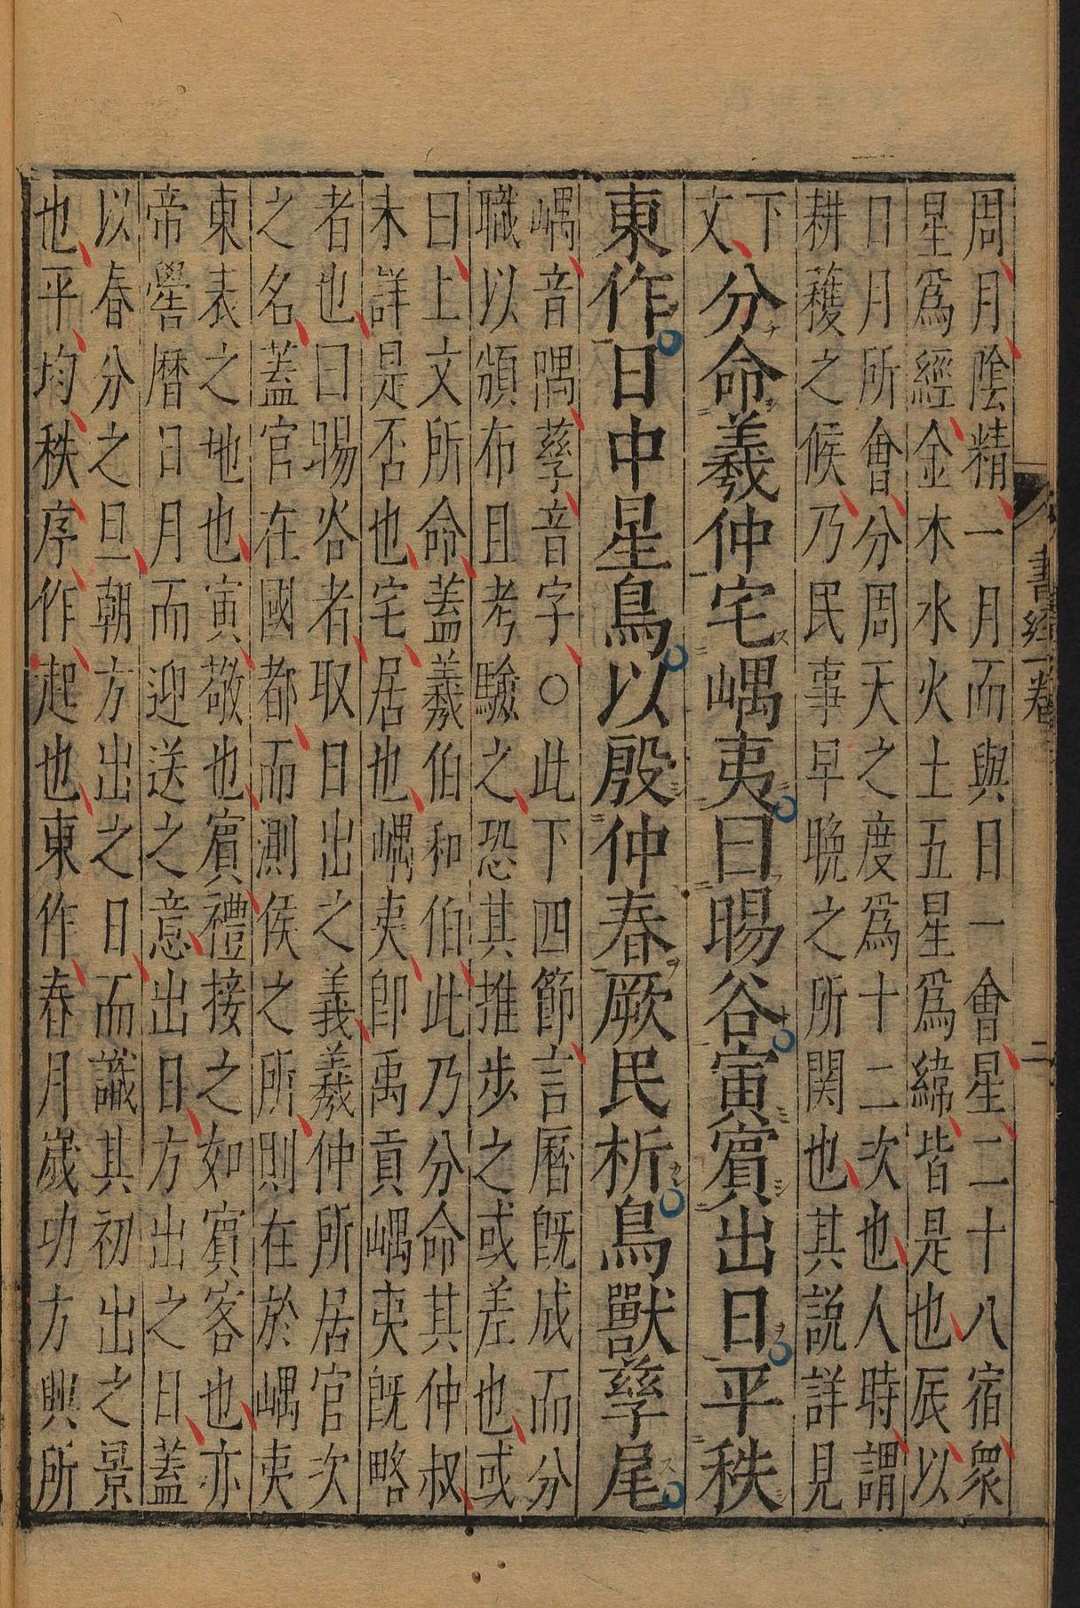 書經一卷
二
周月陰精一月而與日一會星二十八宿衆
星爲經金木水火土五星爲緯皆是也辰以
日月所會分周天之度爲十二次也人時謂
耕穫之候乃民事早晚之所関也其説詳見
下
文
分命羲仲宅嵎夷曰暘谷寅賓出日平秩
東作日中星鳥以殷仲春厥民析鳥獸孳尾
嵎音隅孳音字○此下四節言曆既成而分
職以頒布且考驗之恐其推步之或差也或
曰上文所命蓋羲伯和伯此乃分命其仲叔
未詳是否也宅居也嵎夷卽禹貢嵎夷既略
者也曰暘谷者取日出之義羲仲所居官次
之名蓋官在國都而測侯之所則在於嵎夷
東表之地也寅敬也賓禮接之如賓客也亦
帝嚳曆日月而迎送之意出日方出之日蓋
以春分之旦朝方出之日而識其初出之景
也平均秩序作起也東作春月歲功方興所